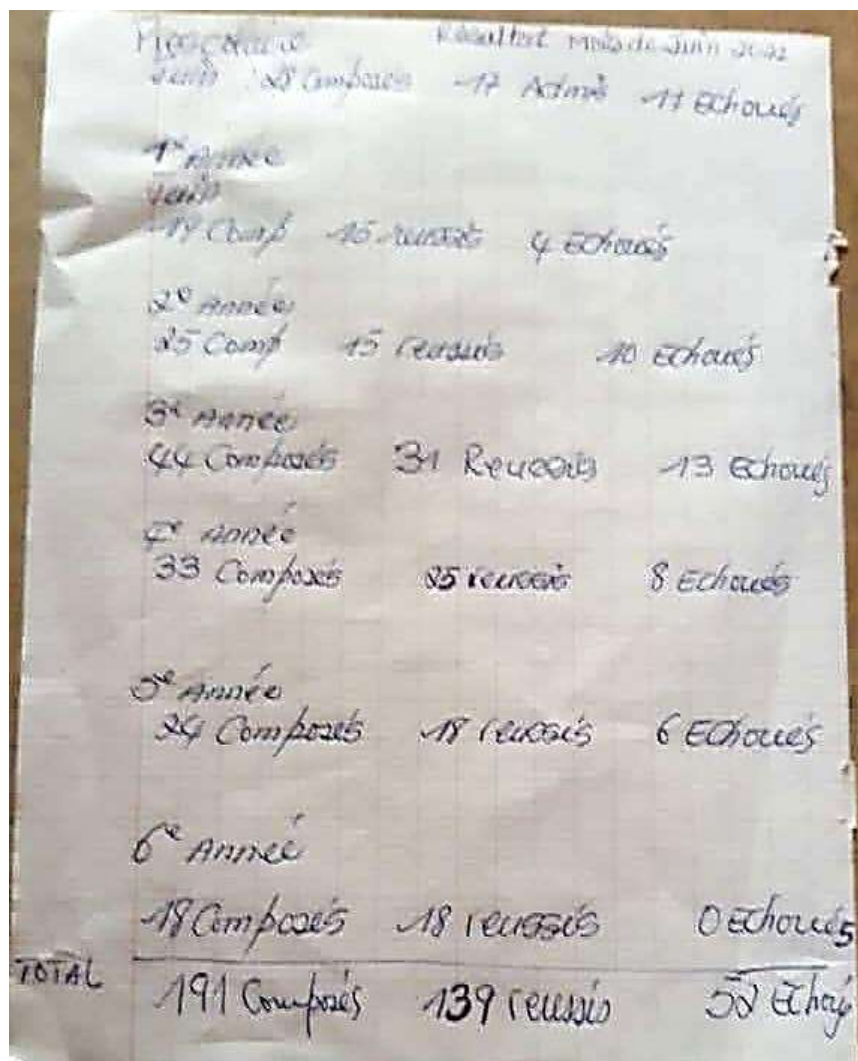 Prescolaire Resultat mois de Juin 2022
Juin 28 Composés 17 Admis 11 Echoués
1e Année
Juin
19 Comp 15 reussis 4 Echoués
2e Année
25 Comp 15 reussis 10 Echoués
3e Année
44 Composés 31 Reussis 13 Echoués
4e Année
33 Composés 25 reussis 8 Echoués
5e Année
24 Composés 18 reussis 6 Echoués
6e Année
18 Composés 18 reussis 0 Echoués
TOTAL 191 Composés 139 reussis 52 Echoué